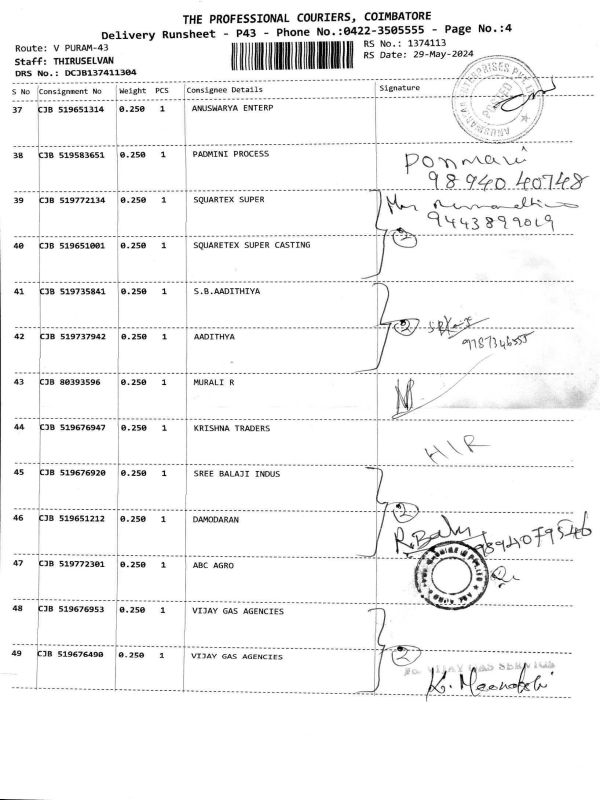 THE PROFESSIONAL COURIERS, COIMBATORE
Delivery Runsheet - P43 - Phone No.:0422-3505555 - Page No.:4
Route: V PURAM-43
RS No.: 1374113
Staff: THIRUSELVAN
RS Date: 29-May-2024
DRS No.: DCJB137411304
S No Consignment No Weight PCS Consignee Details Signature
37 CJB 519651314 0.250 1 ANUSWARYA ENTERP
38 CJB 519583651 0.250 1 PADMINI PROCESS
98940 40748
39 CJB 519772134 0.250 1 SQUARTEX SUPER
9443899019
40 CJB 519651001 0.250 1 SQUARETEX SUPER CASTING
2
41 CJB 519735841 0.250 1 S.B.AADITHIYA
2
42 CJB 519737942 0.250 1 AADITHYA
43 CJB 80393596 0.250 1 MURALI R
44 CJB 519676947 0.250 1 KRISHNA TRADERS
HIR
45 CJB 519676920 0.250 1 SREE BALAJI INDUS
2
46 CJB 519651212 0.250 1 DAMODARAN
R. Balu
9894079546
47 CJB 519772301 0.250 1 ABC AGRO
48 CJB 519676953 0.250 1 VIJAY GAS AGENCIES
49 CJB 519676490 0.250 1 VIJAY GAS AGENCIES
2
VIJAY GAS SERVICE
K. Meenakshi